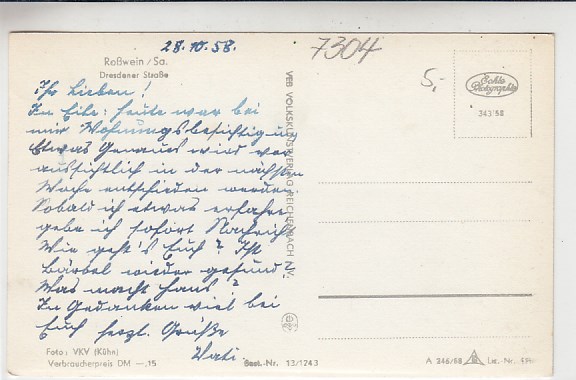 28.10.58.
7304
Roßwein / Sa.
Dresdener Straße
5,-
Echte Photographie
343/58
Ihr Lieben!
In Eile: heute war bei
mir Wohnungsbesichtigung
Etwas Genaues wird vor
aussichtlich in der nächsten
Woche entschieden werden.
Sobald ich etwas erfahre
gebe ich sofort Nachricht
Wie geht's Euch? Ist
Bärbel wieder gesund?
Was macht Hans?
In Gedanken viel bei
Euch herzl. Grüße
VEB VOLKSKUNSTVERLAG REICHENBACH I. V.
Foto: VKV (Kühn)
Verbraucherpreis DM —,15
Best.-Nr. 13/1243
A 346/58 Liz.-Nr.